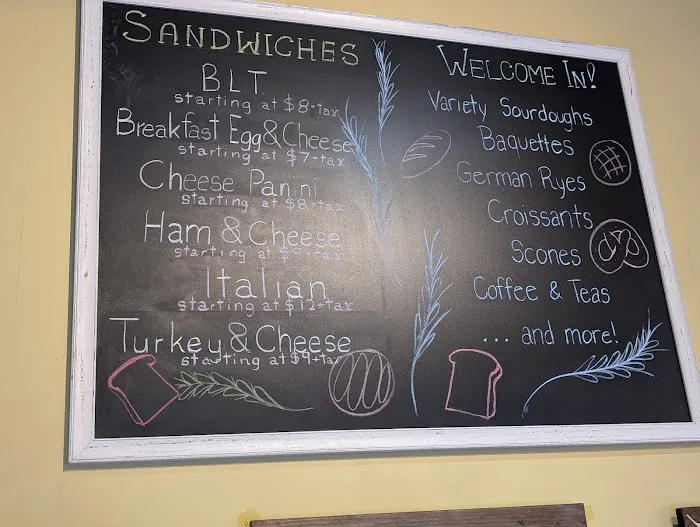 SANDWICHES
BLT
starting at $8+tax
Breakfast Egg&Cheese
starting at $7+tax
Cheese Panini
starting at $8+tax
Ham & Cheese
starting at $9+tax
Italian
starting at $12+tax
Turkey & Cheese
starting at $9+tax
WELCOME IN!
Variety Sourdoughs
Baquettes
German Ryes
Croissants
Scones
Coffee & Teas
... and more!